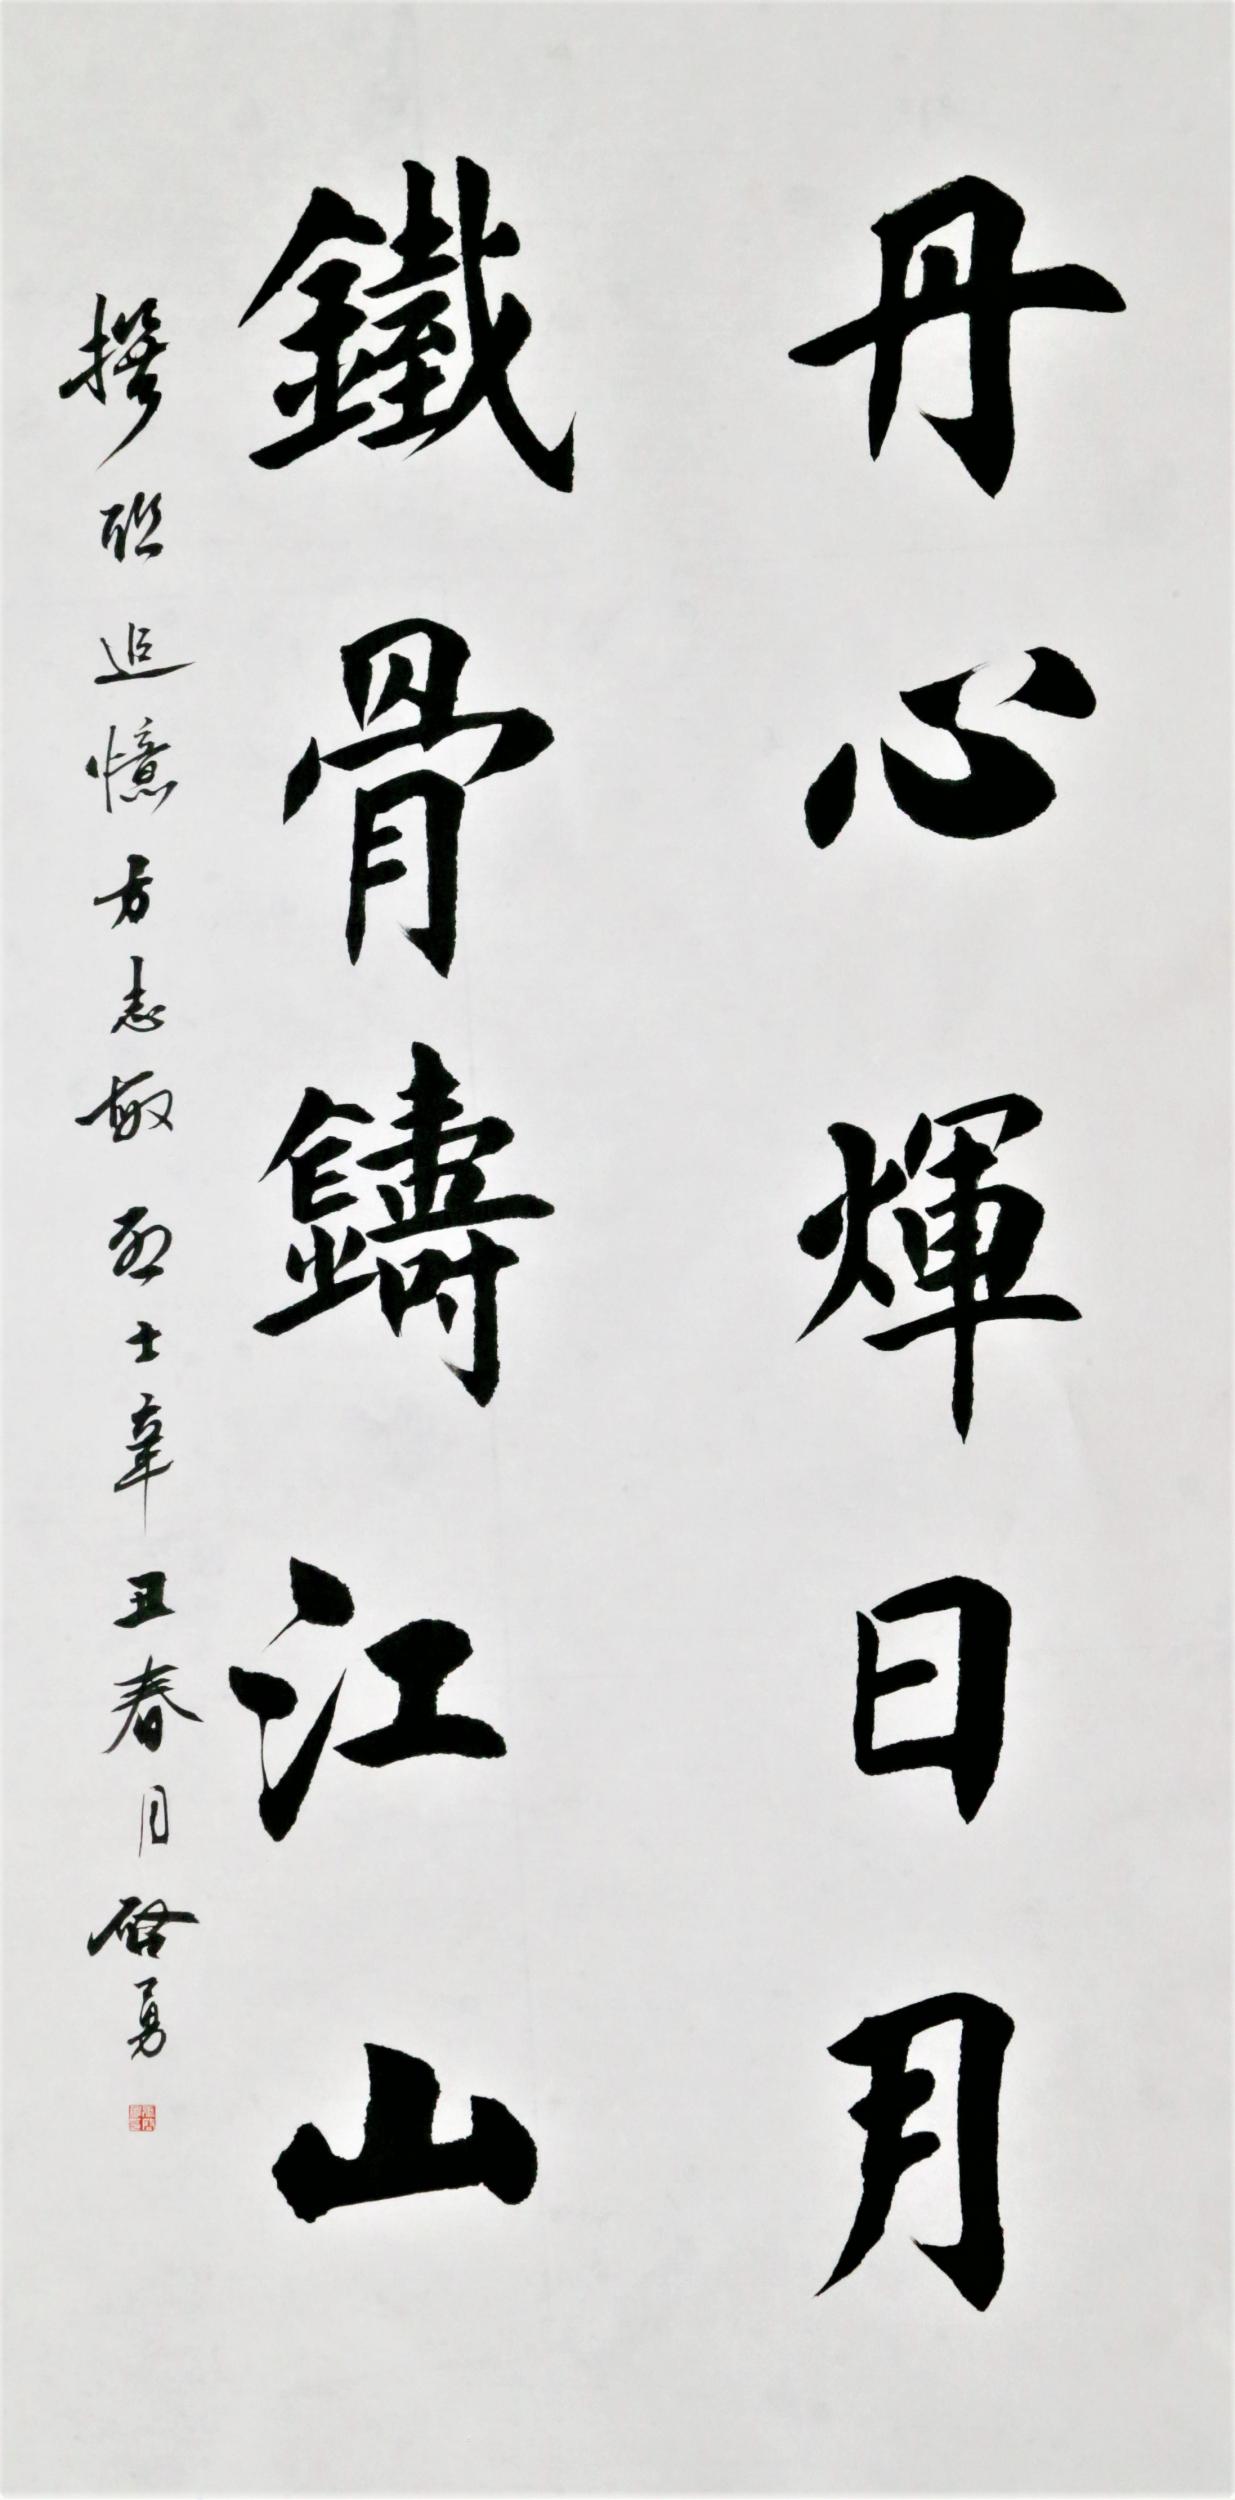 丹心煇日月
鐵骨鑄江山
撰联追憶方志敏烈士辛丑春月啓勇